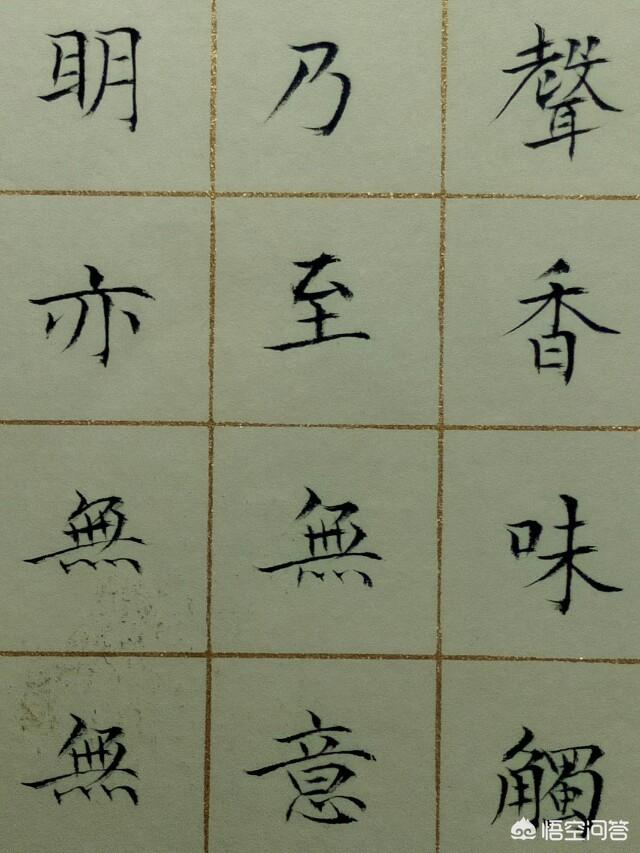 聲香味觸
乃至無意
明亦無無
悟空问答